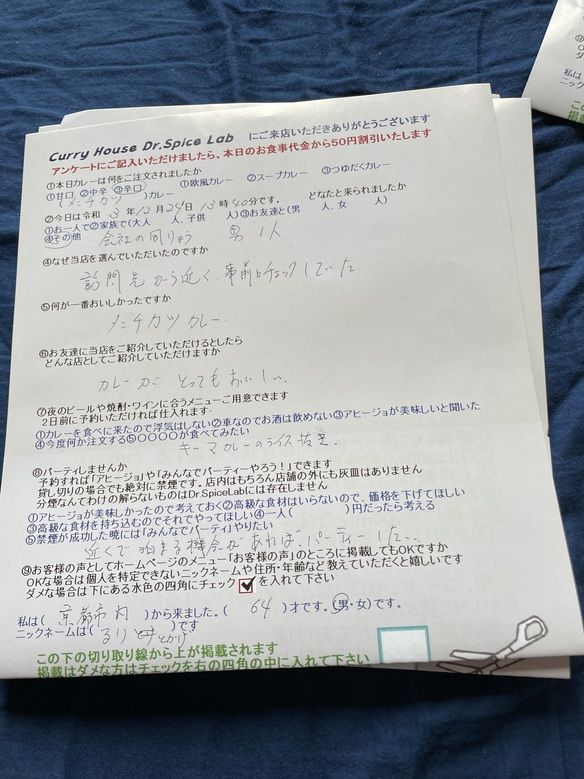 Curry House Dr.Spice Lab にご来店いただきありがとうございます
アンケートにご記入いただけましたら、本日のお食事代金から50円割引いたします
①本日カレーは何をご注文されましたか
①甘口 ②中辛 ③辛口 ①欧風カレー ②スープカレー ③つゆだくカレー
(メンチカツ)カレー
②今日は令和 3年12月24日13時40分です。 どなたと来られましたか
①お一人で②家族で(大人 人、子供 人)③お友達と(男 人、女 人)
④その他 会社の同りょう 男1人
④なぜ当店を選んでいただいたのですか
訪問先から近く、事前にチェックしていた
⑤何が一番おいしかったですか
メンチカツカレー
⑥お友達に当店をご紹介していただけるとしたら
どんな店としてご紹介していただけますか
カレーがとってもおいしい。
⑦夜のビールや焼酎・ワインに合うメニューご用意できます
2日前に予約いただければ仕入れます。
①カレーを食べに来たので浮気はしない②車なのでお酒は飲めない③アヒージョが美味しいと聞いた
④今度何か注文する⑤〇〇〇〇が食べてみたい
キーマカレーのライス抜き。
⑧パーティしませんか
予約すれば「アヒージョ」や「みんなでパーティーやろう!」できます
貸し切りの場合でも絶対に禁煙です。店内はもちろん店舗の外にも灰皿はありません
分煙なんてわけの解らないものはDr.SpiceLabには存在しません
①アヒージョが美味しかったので考えておく②高級な食材はいらないので、価格を下げてほしい
③高級な食材を持ち込むのでそれでやってほしい④一人( )円だったら考える
⑤禁煙が成功した暁には「みんなでパーティ」やりたい
近くで泊まる機会があればパーティーしたい。
⑨お客様の声としてホームページのメニュー「お客様の声」のところに掲載してもOKですか
OKな場合は個人を特定できないニックネームや住所・年齢など教えていただくと嬉しいです
ダメな場合は下にある水色の四角にチェック✔を入れて下さい
私は(京都市内)から来ました。(64)才です。(男・女)です。
ニックネームは(るり とかげ)です
この下の切り取り線から上が掲載されます
掲載はダメな方はチェックを右の四角の中に入れて下さい
私は
ニック